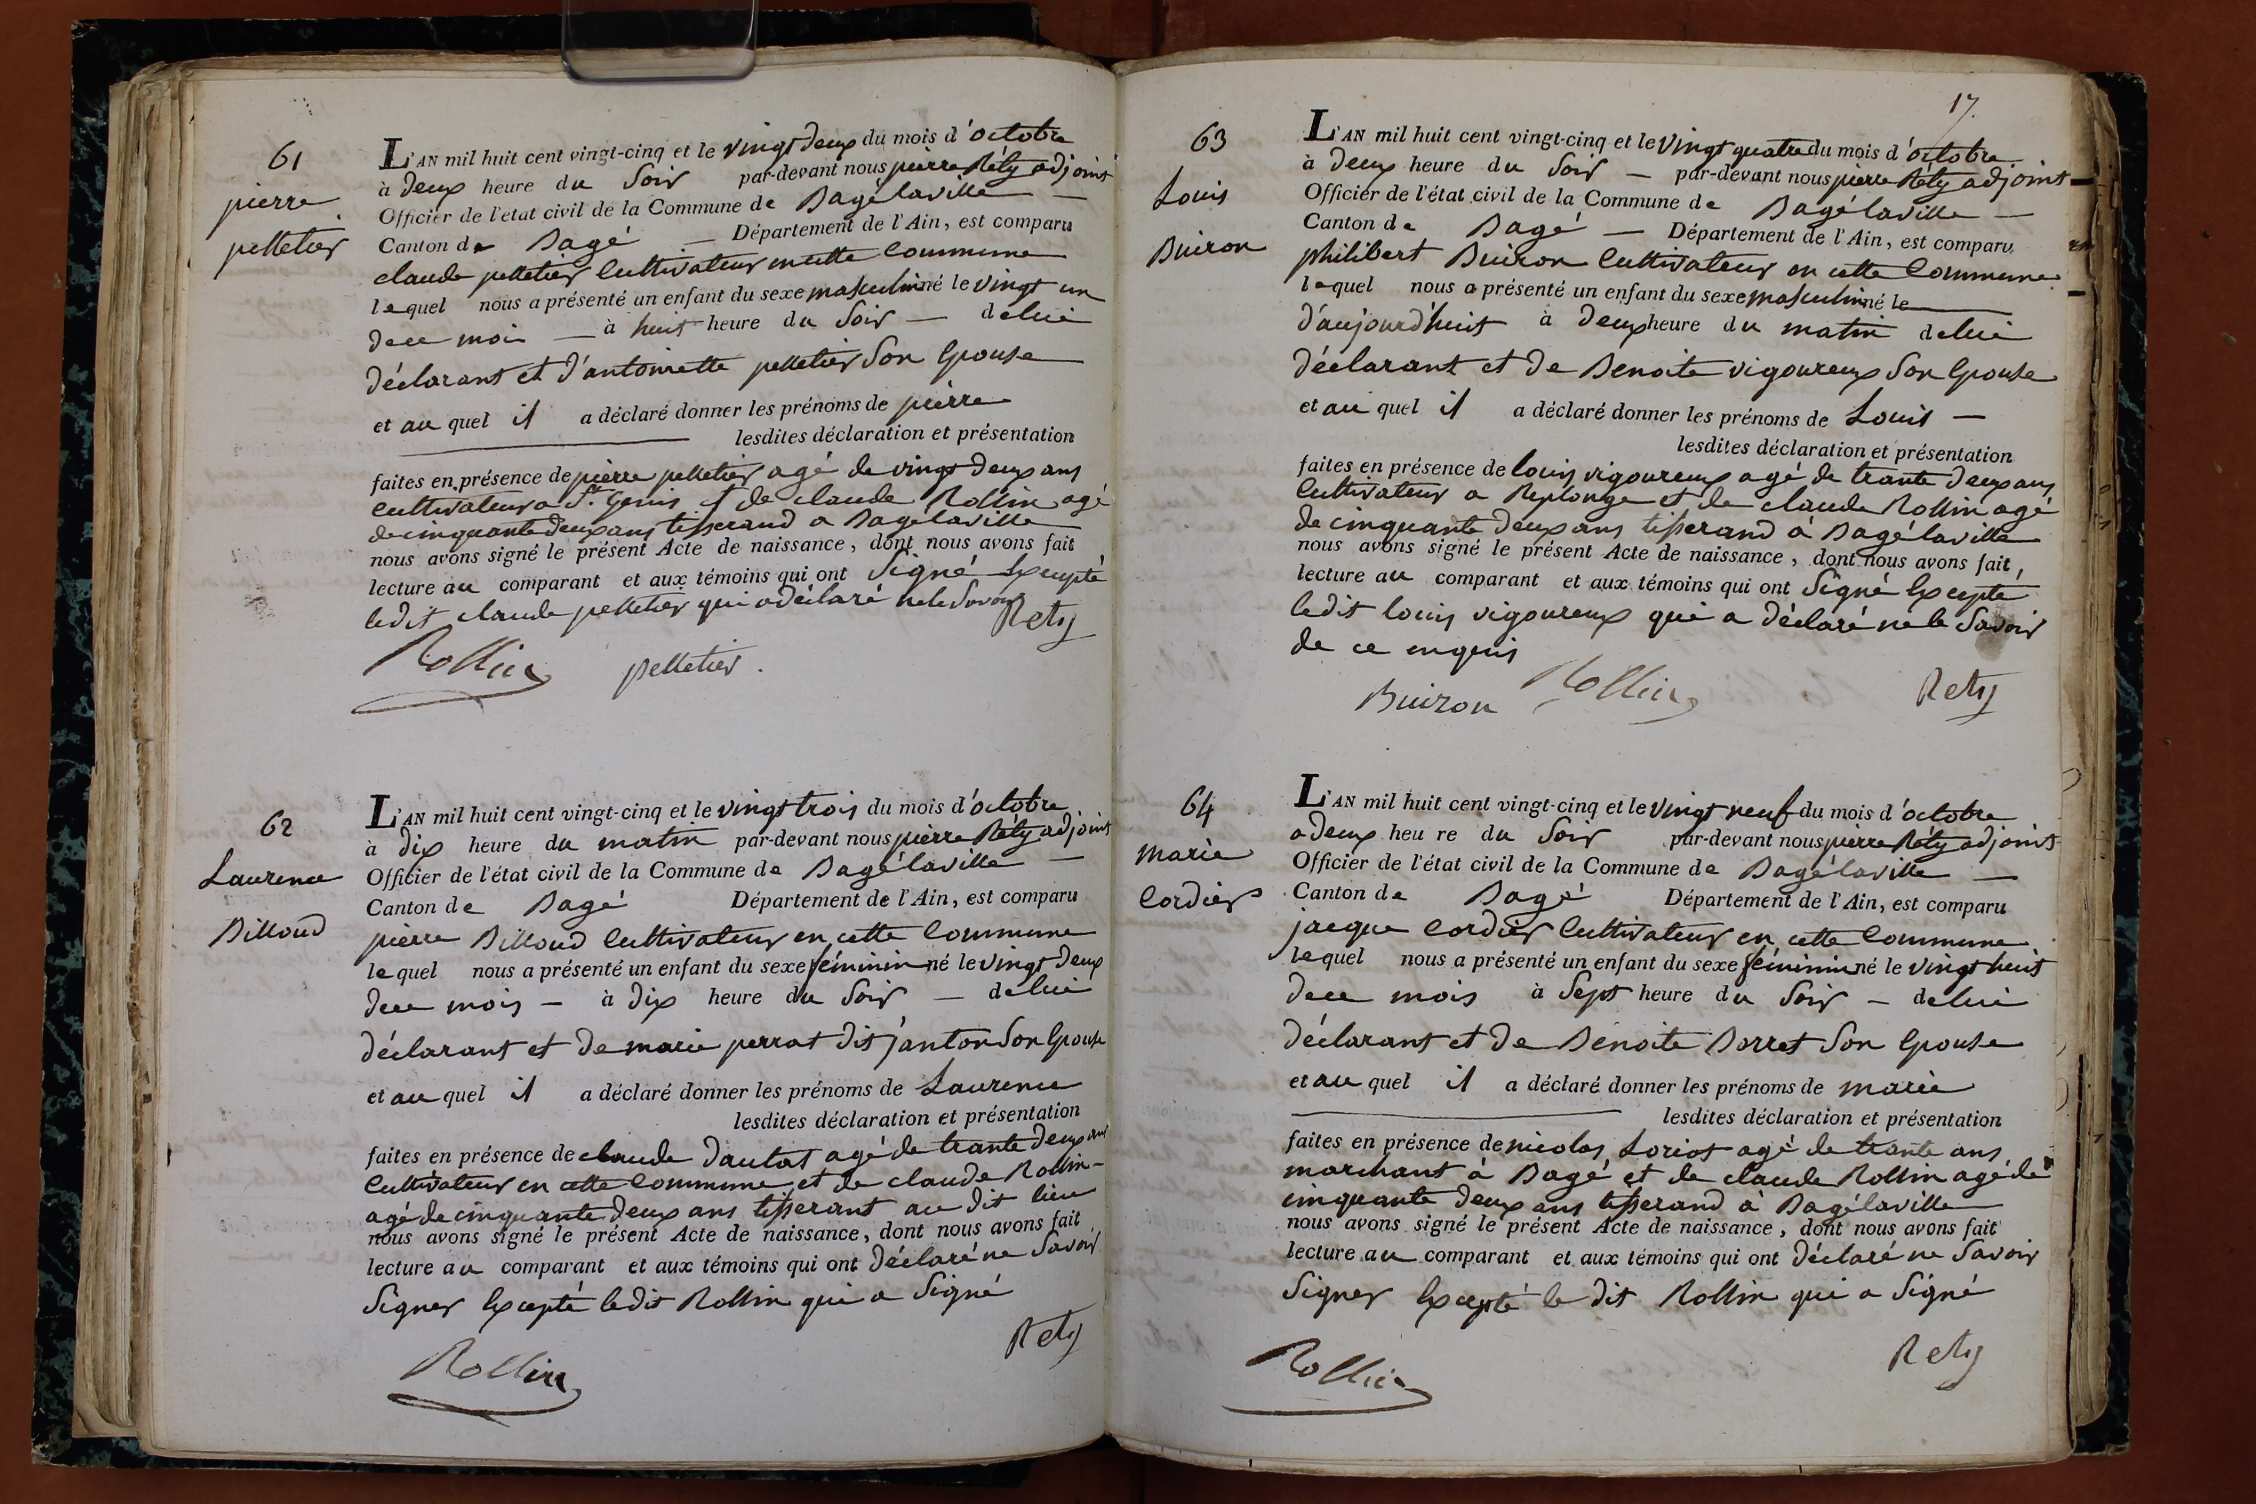 61
pierre
pelletier
L'AN mil huit cent vingt-cinq et le vingt deux du mois d'octobre
à deux heure du Soir par-devant nous pierre Réty adjoint
Officier de l'état civil de la Commune de Bagélaville —
Canton de Bagé — Département de l'Ain, est comparu
claude pelletier Cultivateur en cette Commune
lequel nous a présenté un enfant du sexe masculin né le vingt un
de ce moi — à huit heure du Soir — de lui
déclarant et d'antoinette pelletier Son Epouse
et au quel il a déclaré donner les prénoms de pierre
lesdites déclaration et présentation
faites en présence de pierre pelletier agé de vingt deux ans
Cultivateur a St. Genis et de claude Rollin agé
de cinquante deux ans tisserand a Bagélaville
nous avons signé le présent Acte de naissance, dont nous avons fait
lecture au comparant et aux témoins qui ont Signé Excepté
ledit claude pelletier qui a déclaré ne le Savoir
Rety
Rollin pelletier.
62
Laurence
Billoud
L'AN mil huit cent vingt-cinq et le vingt trois du mois d'octobre
à dix heure du matin par-devant nous pierre Réty adjoint
Officier de l'état civil de la Commune de Bagélaville —
Canton de Bagé Département de l'Ain, est comparu
pierre Billoud Cultivateur en cette Commune
lequel nous a présenté un enfant du sexe féminin né le vingt deux
de ce mois — à dix heure du Soir — de lui
déclarant et de marie perrat dit janton Son Epouse
et au quel il a déclaré donner les prénoms de Laurence
lesdites déclaration et présentation
faites en présence de claude dautat agé de trante deux ans
Cultivateur en cette Commune et de claude Rollin-
agé de cinquante deux ans tisserant au dit lieu
nous avons signé le présent Acte de naissance, dont nous avons fait
lecture au comparant et aux témoins qui ont déclaré ne Savoir
Signer Excepté ledit Rollin qui a Signé
Rety
Rollin
17.
63
Louis
Buiron
L'AN mil huit cent vingt-cinq et le vingt quatre du mois d'octobre
à deux heure du Soir — par-devant nous pierre Réty adjoint
Officier de l'état civil de la Commune de Bagélaville —
Canton de Bagé — Département de l'Ain, est comparu
philibert Buiron Cultivateur en cette Commune
lequel nous a présenté un enfant du sexe masculin né le
d'aujourd'huit à deux heure du matin de lui
déclarant et de Benoite vigoureux Son Epouse
et au quel il a déclaré donner les prénoms de Louis —
lesdites déclaration et présentation
faites en présence de louis vigoureux agé de trante deux ans
Cultivateur a Replonge et de claude Rollin agé
de cinquante deux ans tisserand à Bagélaville
nous avons signé le présent Acte de naissance, dont nous avons fait,
lecture au comparant et aux témoins qui ont Signé Excepté
ledit louis vigoureux qui a déclaré ne le Savoir
de ce enquis
Buiron Rollin Rety
64
marie
Cordier
L'AN mil huit cent vingt-cinq et le vingt neuf du mois d'octobre
a deux heu re du Soir par-devant nous pierre Réty adjoint
Officier de l'état civil de la Commune de Bagélaville —
Canton de Bagé Département de l'Ain, est comparu
jacque Cordier Cultivateur en cette Commune
lequel nous a présenté un enfant du sexe féminin né le vingt huit
de ce mois à Sept heure du Soir — de lui
déclarant et de Benoite Borret Son Epouse
et au quel il a déclaré donner les prénoms de marie
lesdites déclaration et présentation
faites en présence de nicolas Loriot agé de trante ans
marchant à Bagé et de claude Rollin agé de
cinquante deux ans tisserand à Bagélaville
nous avons signé le présent Acte de naissance, dont nous avons fait
lecture au comparant et aux témoins qui ont déclaré ne Savoir
Signer Excepté le dit Rollin qui a Signé
Rety
Rollin